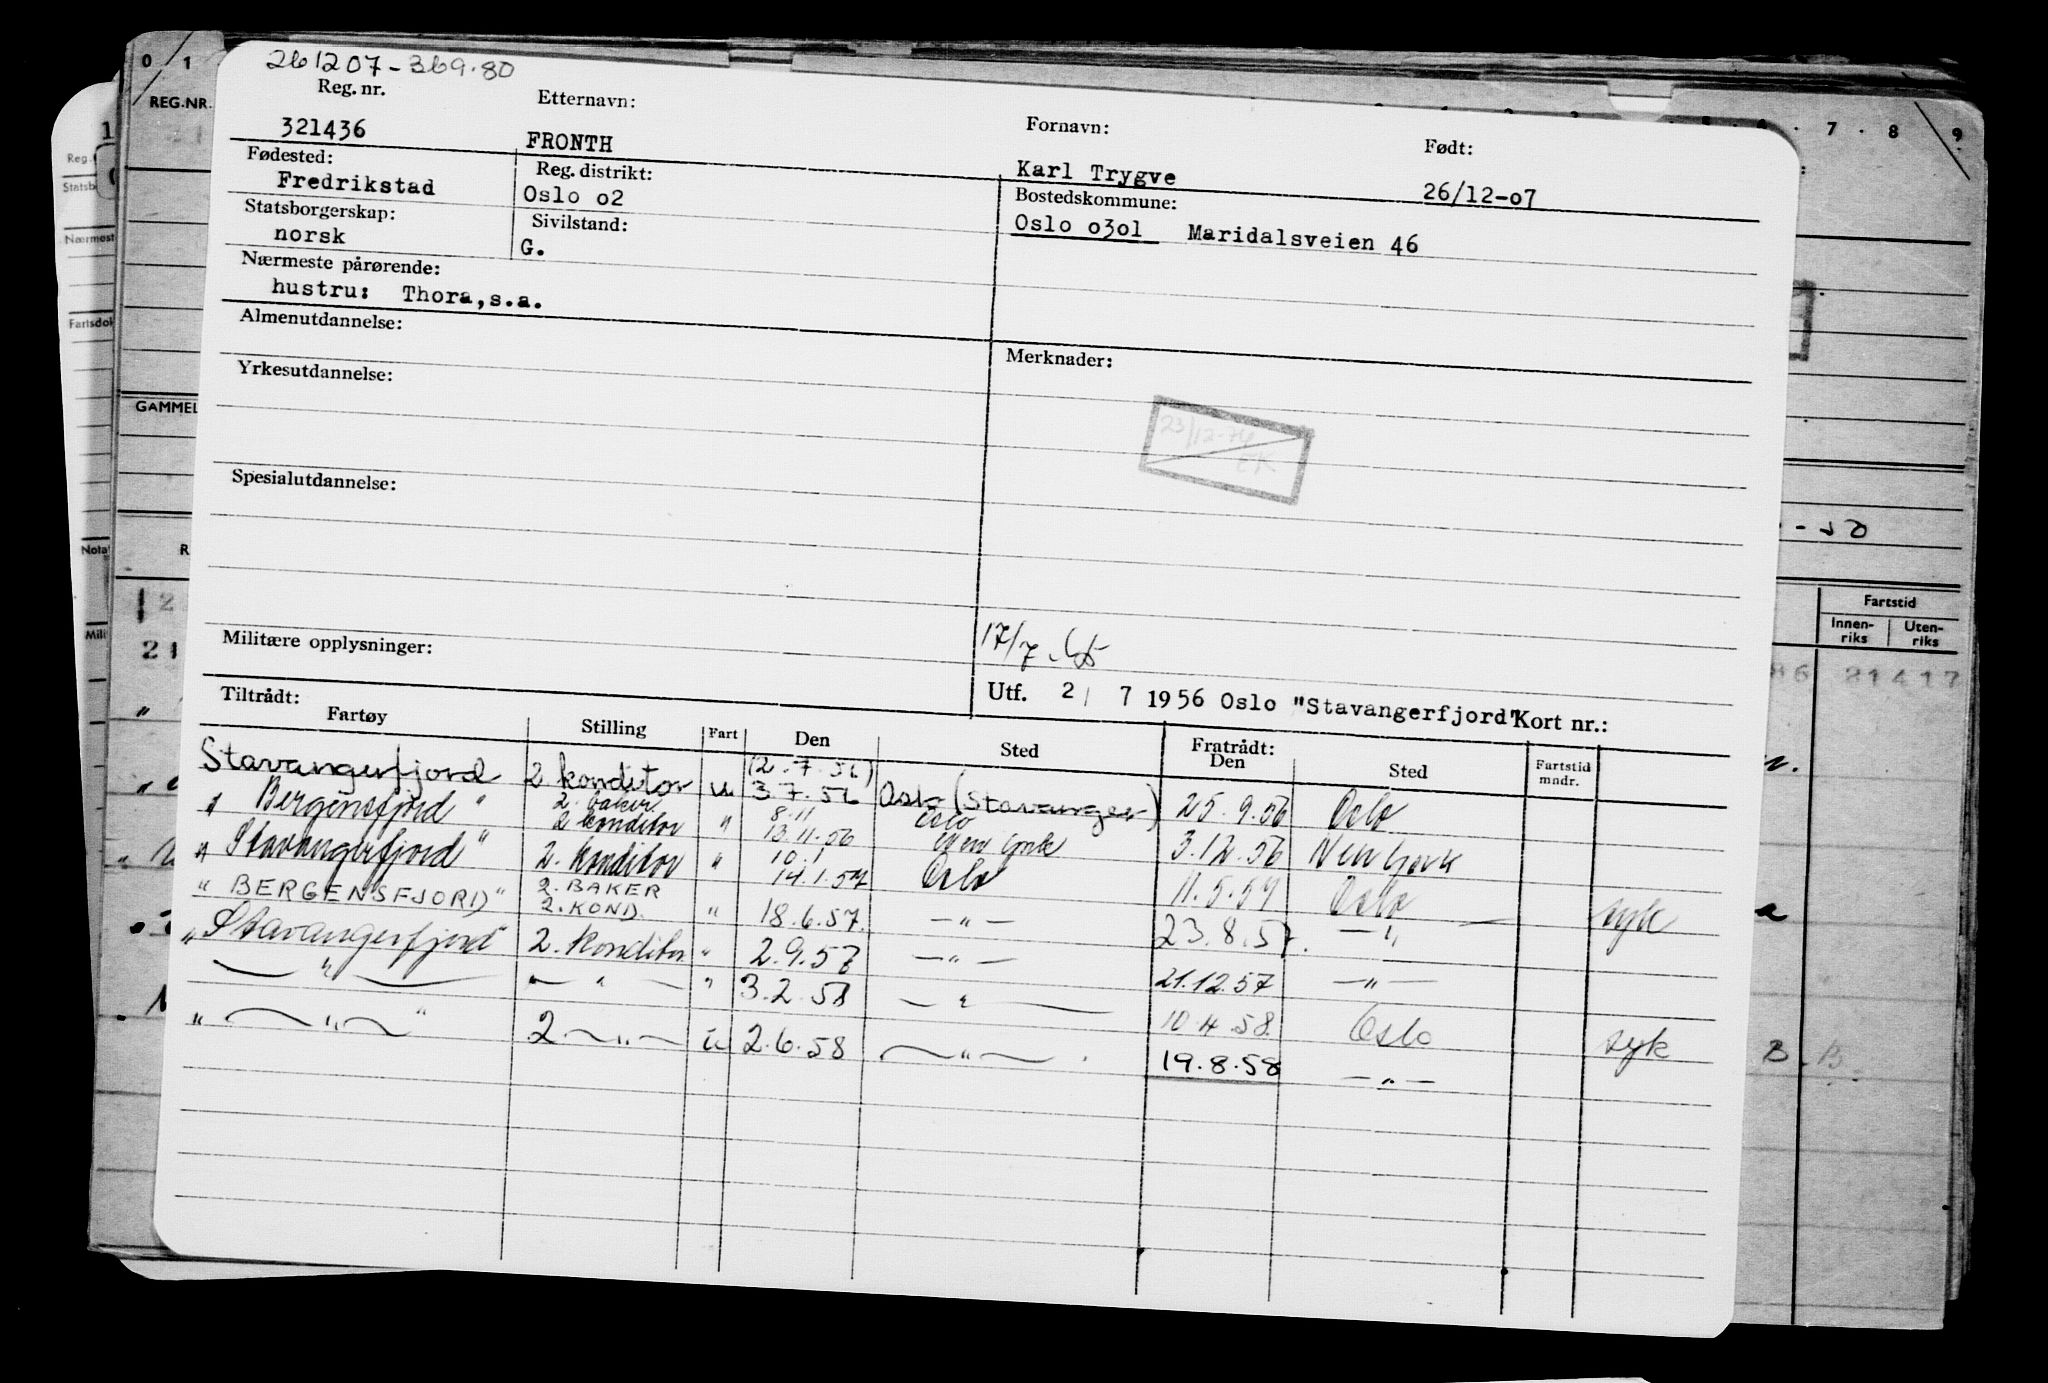 261207-369.80
Reg. nr. Etternavn: Fornavn: Født:
321436 FRONTH Karl Trygve 26/12-07
Fødested: Reg. distrikt: Bostedskommune:
Fredrikstad Oslo o2 Oslo o3o1 Maridalsveien 46
Statsborgerskap: Sivilstand:
norsk G.
Nærmeste pårørende:
hustru: Thora,s.a.
Almenutdannelse: Merknader:
Yrkesutdannelse:
23/12-74
EK
Spesialutdannelse:
Militære opplysninger: 17/7
Utf. 2/ 7 1956 Oslo "Stavangerfjord" Kort nr.:
Tiltrådt: Fratrådt:
Fartøy Stilling Fart Den Sted Den Sted Fartstid mndr.
Stavangerfjord 2. konditor u (2.7.56) 3.7.56 Oslo (Stavanger) 25.9.56 Oslo
" Bergensfjord " 2. baker 2 konditor " 8.11 13.11.56 Oslo New York 3.12.56 New York
" Stavangerfjord " 2. konditor " 10.1 14.1.57 Oslo 11.5.57 Oslo syk
" BERGENSFJORD " 2. BAKER 2. KOND. " 18.6.57. — " — 23.8.57. — " —
" Stavangerfjord " 2. konditor " 2.9.57 — " — 21.12.57 — " —
— " — — " — " 3.2.58 — " — 10.4.58. Oslo syk
" — " — " 2 — " — u 2.6.58 — " — . 19.8.58 — " —
0 1
REG.NR.
7 . 8 . 9
GAMMEL
Reg.
Statsb
Nærmest
Fartsdok
Nota
Mili
R
21
Fartstid
Innen-riks Uten-riks
86 21417
B. B